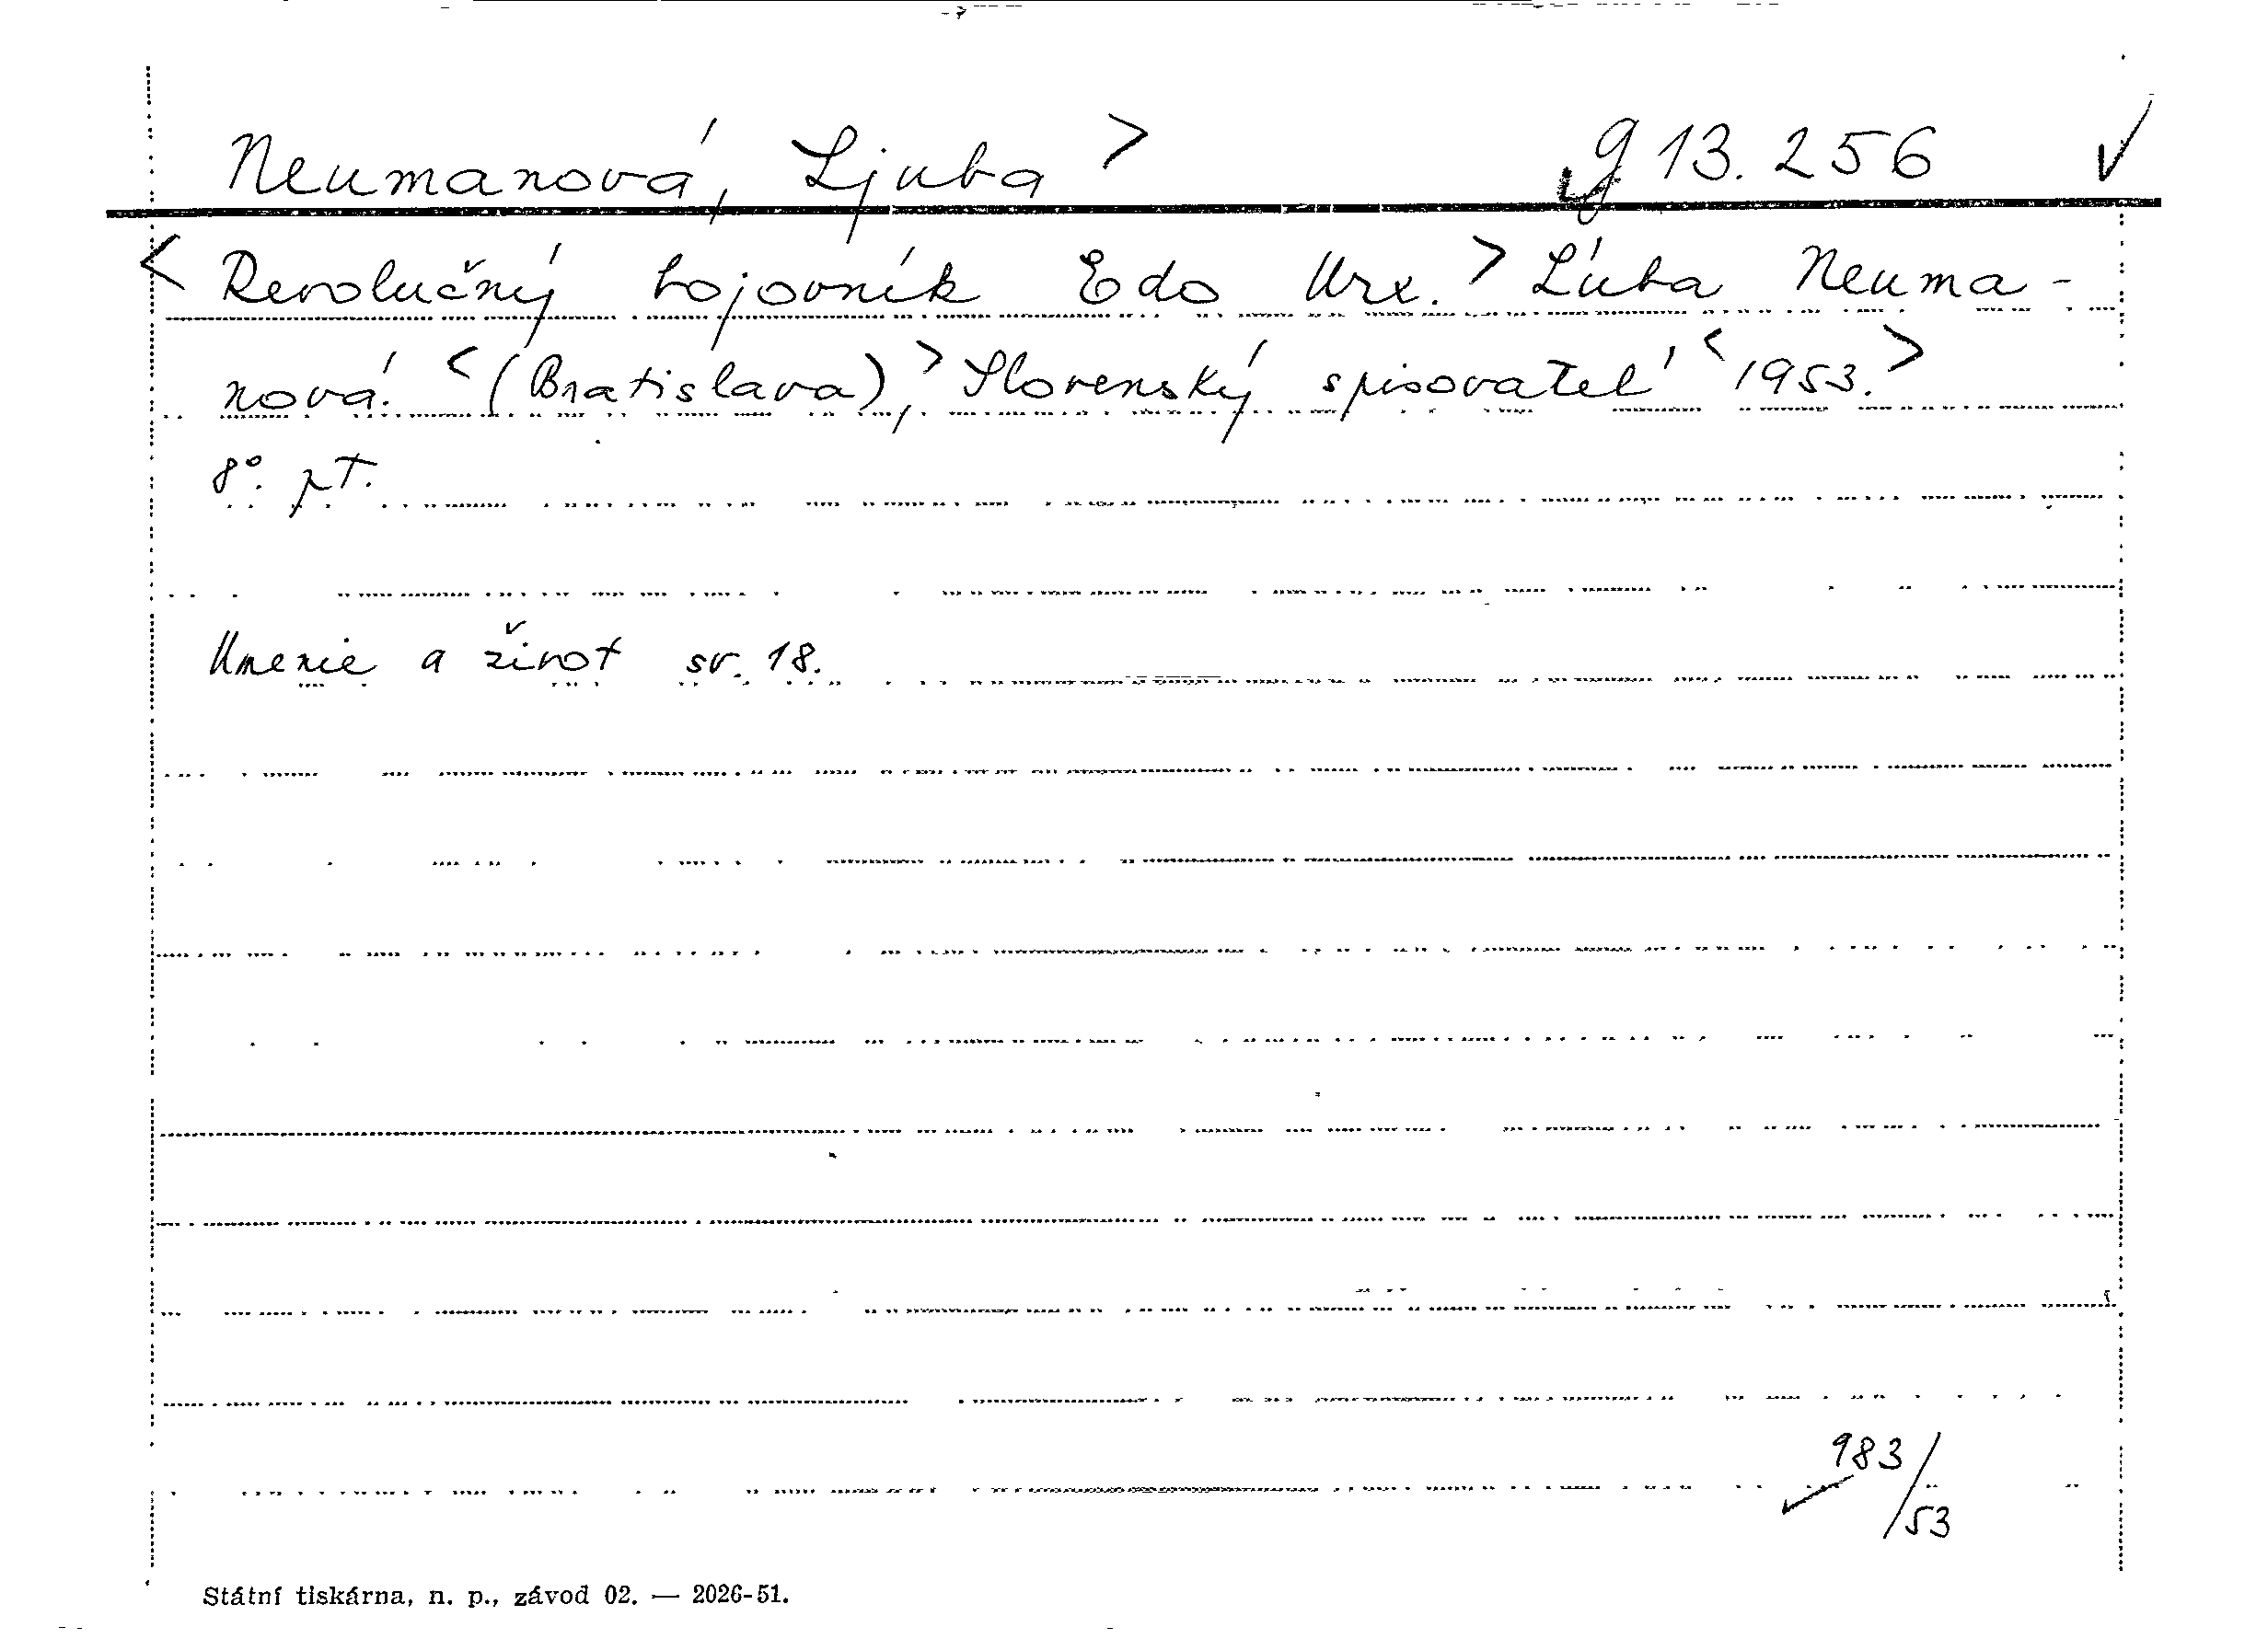 Neumanová, Ljuba > g 13.256 ✓
< Revolučný bojovník Edo Urx. > Ľuba Neuma-
nová. < (Bratislava), > Slovenský spisovateľ < 1953. >
8°. pt.
Umenie a život sv. 18.
983/53
Státní tiskárna, n. p., závod 02. — 2026-51.